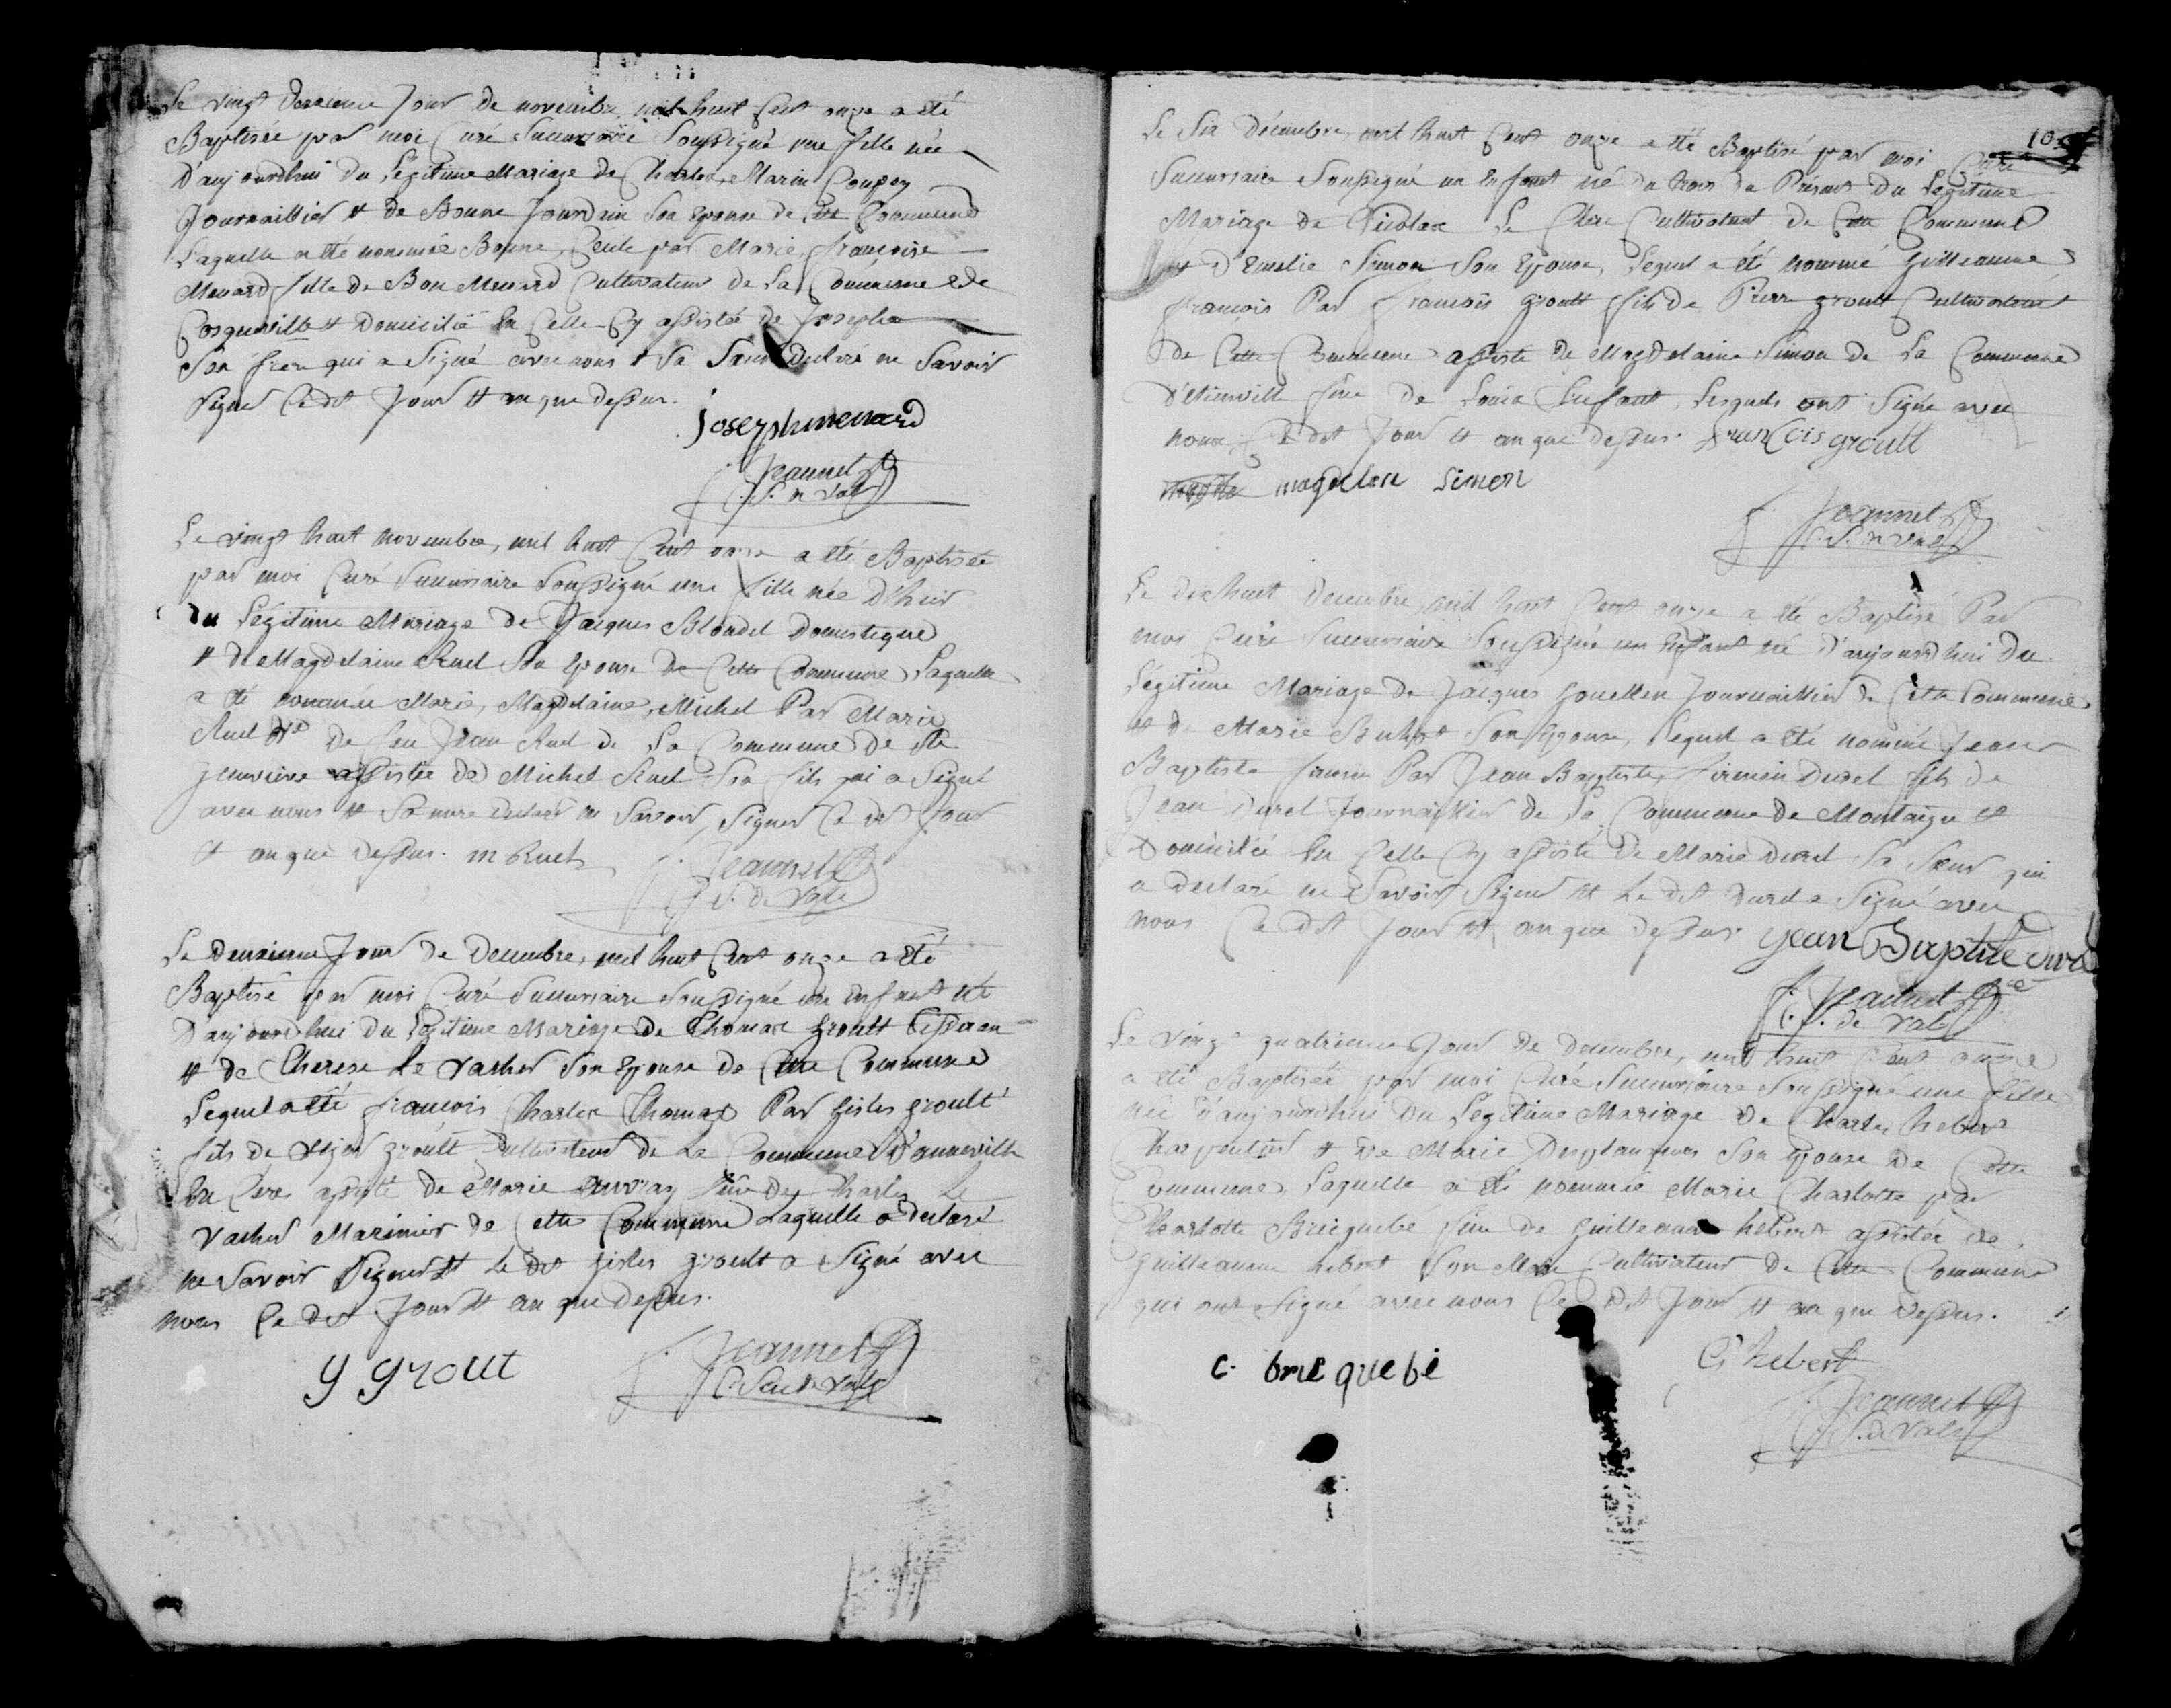 Le vingt deuxieme Jour de novembre, mil huit Cent onze a été
Baptisée par moi Curé Succursaire Soussigné une fille née
D'aujourdhui du Légitime Mariage de Charles, Marin Coupey
Journaillier & de Bonne Jourdain Son Epouse de Cette Commune
Laquelle a été nommée Bonne, Cecile par Marie, françoise
Menard fille de Bon Menard Cultivateur de La Commune de
Cosqueville & domicilié En Celle-Cy assistée de Joseph
Son frere qui a Signé avec nous & Sa Sœur Declaré ne Savoir
Signer Ce dit Jour & an que dessus.
joseph menard
Jeannet
C. S. de Val
Le vingt huit Novembre, mil huit Cent onze a été Baptisée
par moi Curé Succursaire Soussigné une fille née D'hier
du Légitime Mariage de Jacques Blondel Domestique
& de Magdelaine Ruel Son Epouse de Cette Commune Laquelle
a été nommée Marie, Magdelaine, Michel Par Marie
Ruel de feu Jean Ruel de La Commune de Ste
Genevieve assistée de Michel Ruel Son fils qui a Signé
avec nous & Sa mere declaré ne Savoir Signer Ce dit Jour
& an que Dessus. m Ruel
Jeannet
C. S. de Val
Le Deuxieme Jour de Decembre, mil huit Cent onze a été
Baptisé par moi Curé Succursaire Soussigné un Enfant né
D'aujourdhui du Légitime Mariage de Thomas Groult
& de Therese Le Vacher Son Epouse de Cette Commune
Lequel a été francois Charles Thomas Par Gisles Groult
fils de Groult Cultivateur de La Commune D'anneville
En Cere assisté de Marie Auvray de Charles Le
Vacher Marinier de Cette Commune Laquelle a declaré
ne Savoir Signer & Le dit Gisles Groult a Signé avec
nous Ce dit Jour & an que Dessus.
g grout
Jeannet
C. S. de Val
10
Le Six Décembre, mil huit Cent onze a été Baptisé par moi Curé
Succursaire Soussigné un Enfant né du trois du Présent du Légitime
Mariage de Nicolas Le Cultivateur de Cette Commune
& D'Emelie Simon Son Epouse, Lequel a été nommé Guilleaume
francois Par francois Groult fils de Pierre Groult Cultivateur
de Cette Commune assisté de Magdelaine Simon de La Commune
D'Etienville de Louis Lesquels ont Signé avec
nous Ce dit Jour & an que dessus. francois groult
magdelen simon
Jeannet
C. S. de Val
Le dix huit Decembre, mil huit Cent onze a été Baptisé Par
moi Curé Succursaire Soussigné un Enfant né D'aujourdhui du
Légitime Mariage de Jacques Journaillier de Cette Commune
& de Marie Son Epouse, Lequel a été nommé Jean
Baptiste firmin Par Jean Baptiste, firmin Durel fils de
Jean Durel Journaillier de La Commune de Montaigu &
Domicilié En Celle Cy assisté de Marie Durel Sa Sœur qui
a declaré ne Savoir Signer & Le dit Durel a Signé avec
nous Ce dit Jour & an que dessus. jean Baptiste
Jeannet
C. S. de Val
Le Vingt quatrieme Jour de Decembre, mil huit Cent onze
a été Baptisée par moi Curé Succursaire Soussigné une fille
née D'aujourdhui Du Légitime Mariage de Charles hebert
Charpentier & de Marie Desplanques Son Epouse de Cette
Commune, Laquelle a été nommée Marie Charlotte par
Charlotte Bricquebé de Guilleaume hebert assistée de
Guilleaume hebert Son Cultivateur de Cette Commune
qui ont Signé avec nous Ce Dit Jour & an que Dessus.
c. briquebé
G hebert
Jeannet
C. S. de Val